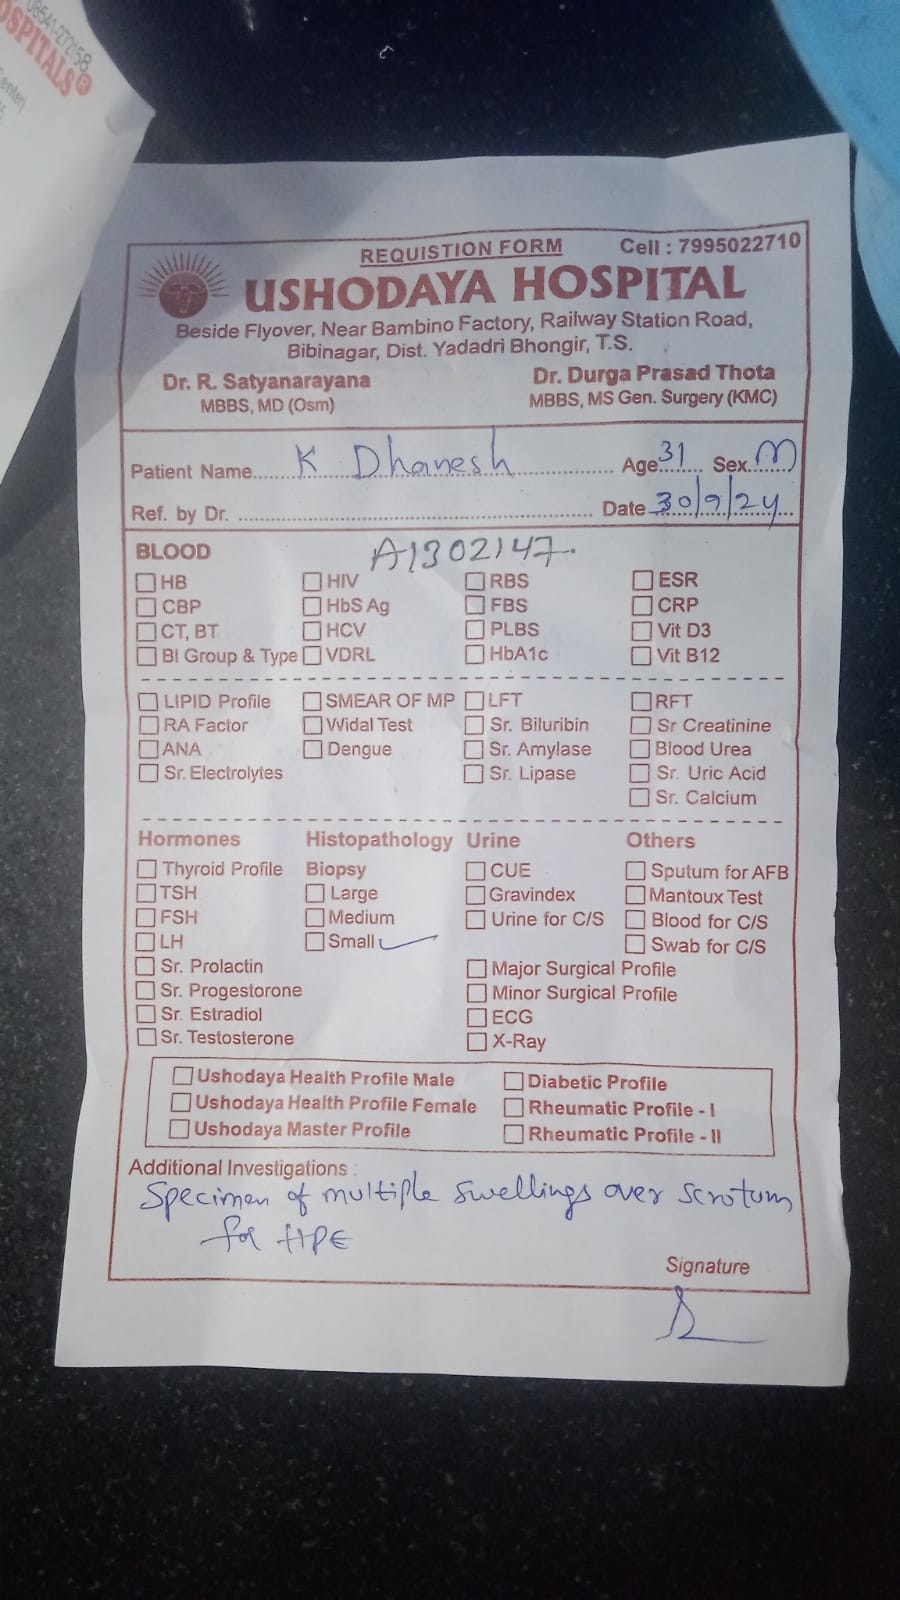 08541-272158
OSPITALS®
Center)
REQUISTION FORM
Cell : 7995022710
USHODAYA HOSPITAL
Beside Flyover, Near Bambino Factory, Railway Station Road,
Bibinagar, Dist. Yadadri Bhongir, T.S.
Dr. R. Satyanarayana
MBBS, MD (Osm)
Dr. Durga Prasad Thota
MBBS, MS Gen. Surgery (KMC)
Patient Name.....K Dhanesh..... Age 31 Sex M
Ref. by Dr. ..... Date 30/9/24
BLOOD A1302147.
HB HIV RBS ESR
CBP HbS Ag FBS CRP
CT, BT HCV PLBS Vit D3
Bl Group & Type VDRL HbA1c Vit B12
LIPID Profile SMEAR OF MP LFT RFT
RA Factor Widal Test Sr. Biluribin Sr Creatinine
ANA Dengue Sr. Amylase Blood Urea
Sr. Electrolytes Sr. Lipase Sr. Uric Acid
Sr. Calcium
Hormones Histopathology Urine Others
Thyroid Profile Biopsy CUE Sputum for AFB
TSH Large Gravindex Mantoux Test
FSH Medium Urine for C/S Blood for C/S
LH Small Swab for C/S
Sr. Prolactin Major Surgical Profile
Sr. Progestorone Minor Surgical Profile
Sr. Estradiol ECG
Sr. Testosterone X-Ray
Ushodaya Health Profile Male Diabetic Profile
Ushodaya Health Profile Female Rheumatic Profile - I
Ushodaya Master Profile Rheumatic Profile - II
Additional Investigations :
Specimen of multiple swellings over scrotum
for HPE
Signature